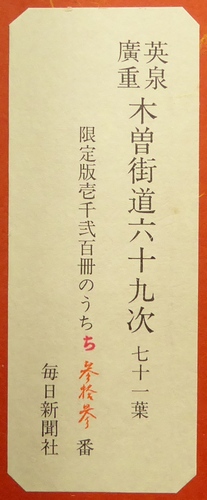 英泉
廣重 木曽街道六十九次 七十一葉
限定版壱千弐百冊のうち ち 参拾参 番
毎日新聞社